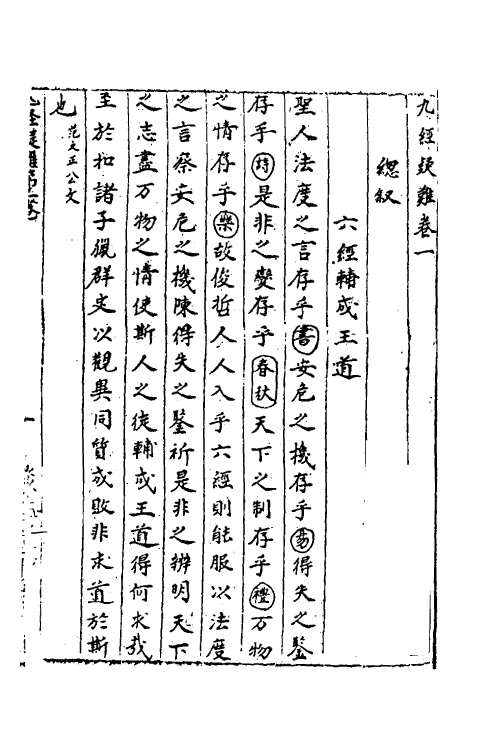 九經疑難卷一
緫叙
六經輔成王道
聖人法度之言存乎書安危之機存乎易得失之鑒
存乎詩是非之變存乎春秋天下之制存乎禮万物
之情存乎樂故俊哲人人入乎六經則能服以法度
之言察安危之機陳得失之鑒析是非之辨明天下
之志盡万物之情使斯人之徒輔成王道得何求哉
至於扣諸子獵群史以觀異同質成敗非求道於斯
也范文正公文